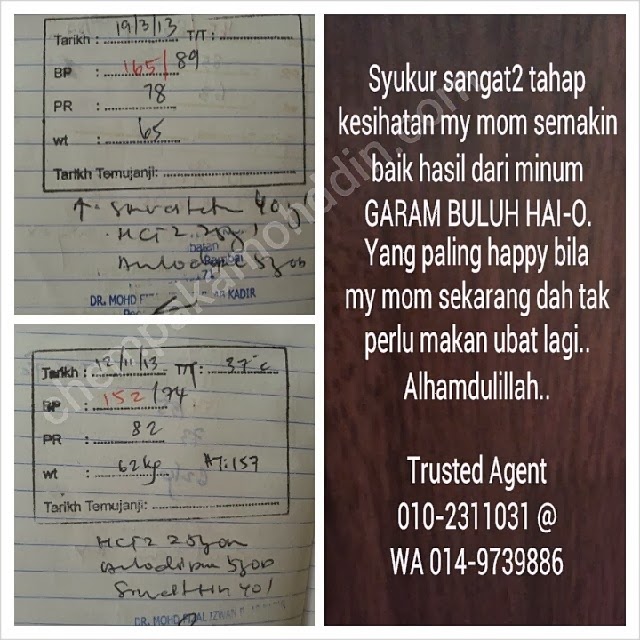 Tarikh : 19/3/13 T/T :
BP : 165/89
PR : 78
wt : 65
Tarikh Temujanji:
↑ Simvastatin 40
HCTZ 25
Amlodipine 5
DR. MOHD KADIR
Tarikh : 12/11/13 T/T : 37°C
BP : 152/74
PR : 82
wt : 62kg HT: 157
Tarikh Temujanji:
HCTZ 25 on
Amlodipine 5 OD
Simvastatin 40
DR. MOHD
Syukur sangat2 tahap
kesihatan my mom semakin
baik hasil dari minum
GARAM BULUH HAI-O.
Yang paling happy bila
my mom sekarang dah tak
perlu makan ubat lagi..
Alhamdulillah..
Trusted Agent
010-2311031 @
WA 014-9739886